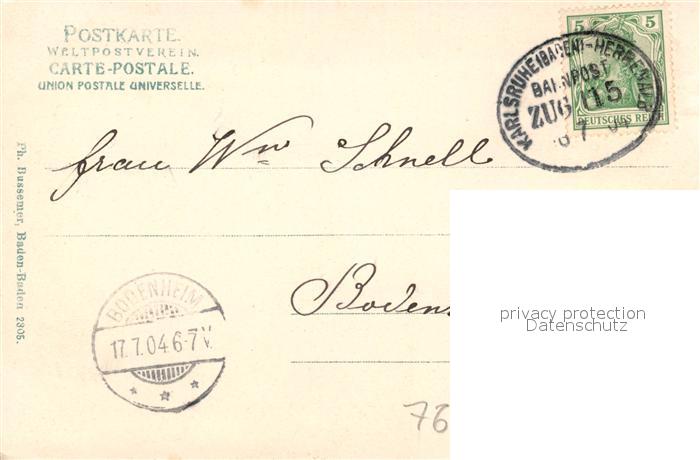 POSTKARTE.
WELTPOSTVEREIN.
CARTE-POSTALE.
UNION POSTALE UNIVERSELLE.
5 5
DEUTSCHES REICH
KARLSRUHE(BADEN)-HERRENALB
BAHNPOST
ZUG 115
7 04
Frau Ww Schnell
Bodens
Ph. Bussemer, Baden-Baden 2305.
BODENHEIM
17.7.04.6-7V.
privacy protection
Datenschutz
76